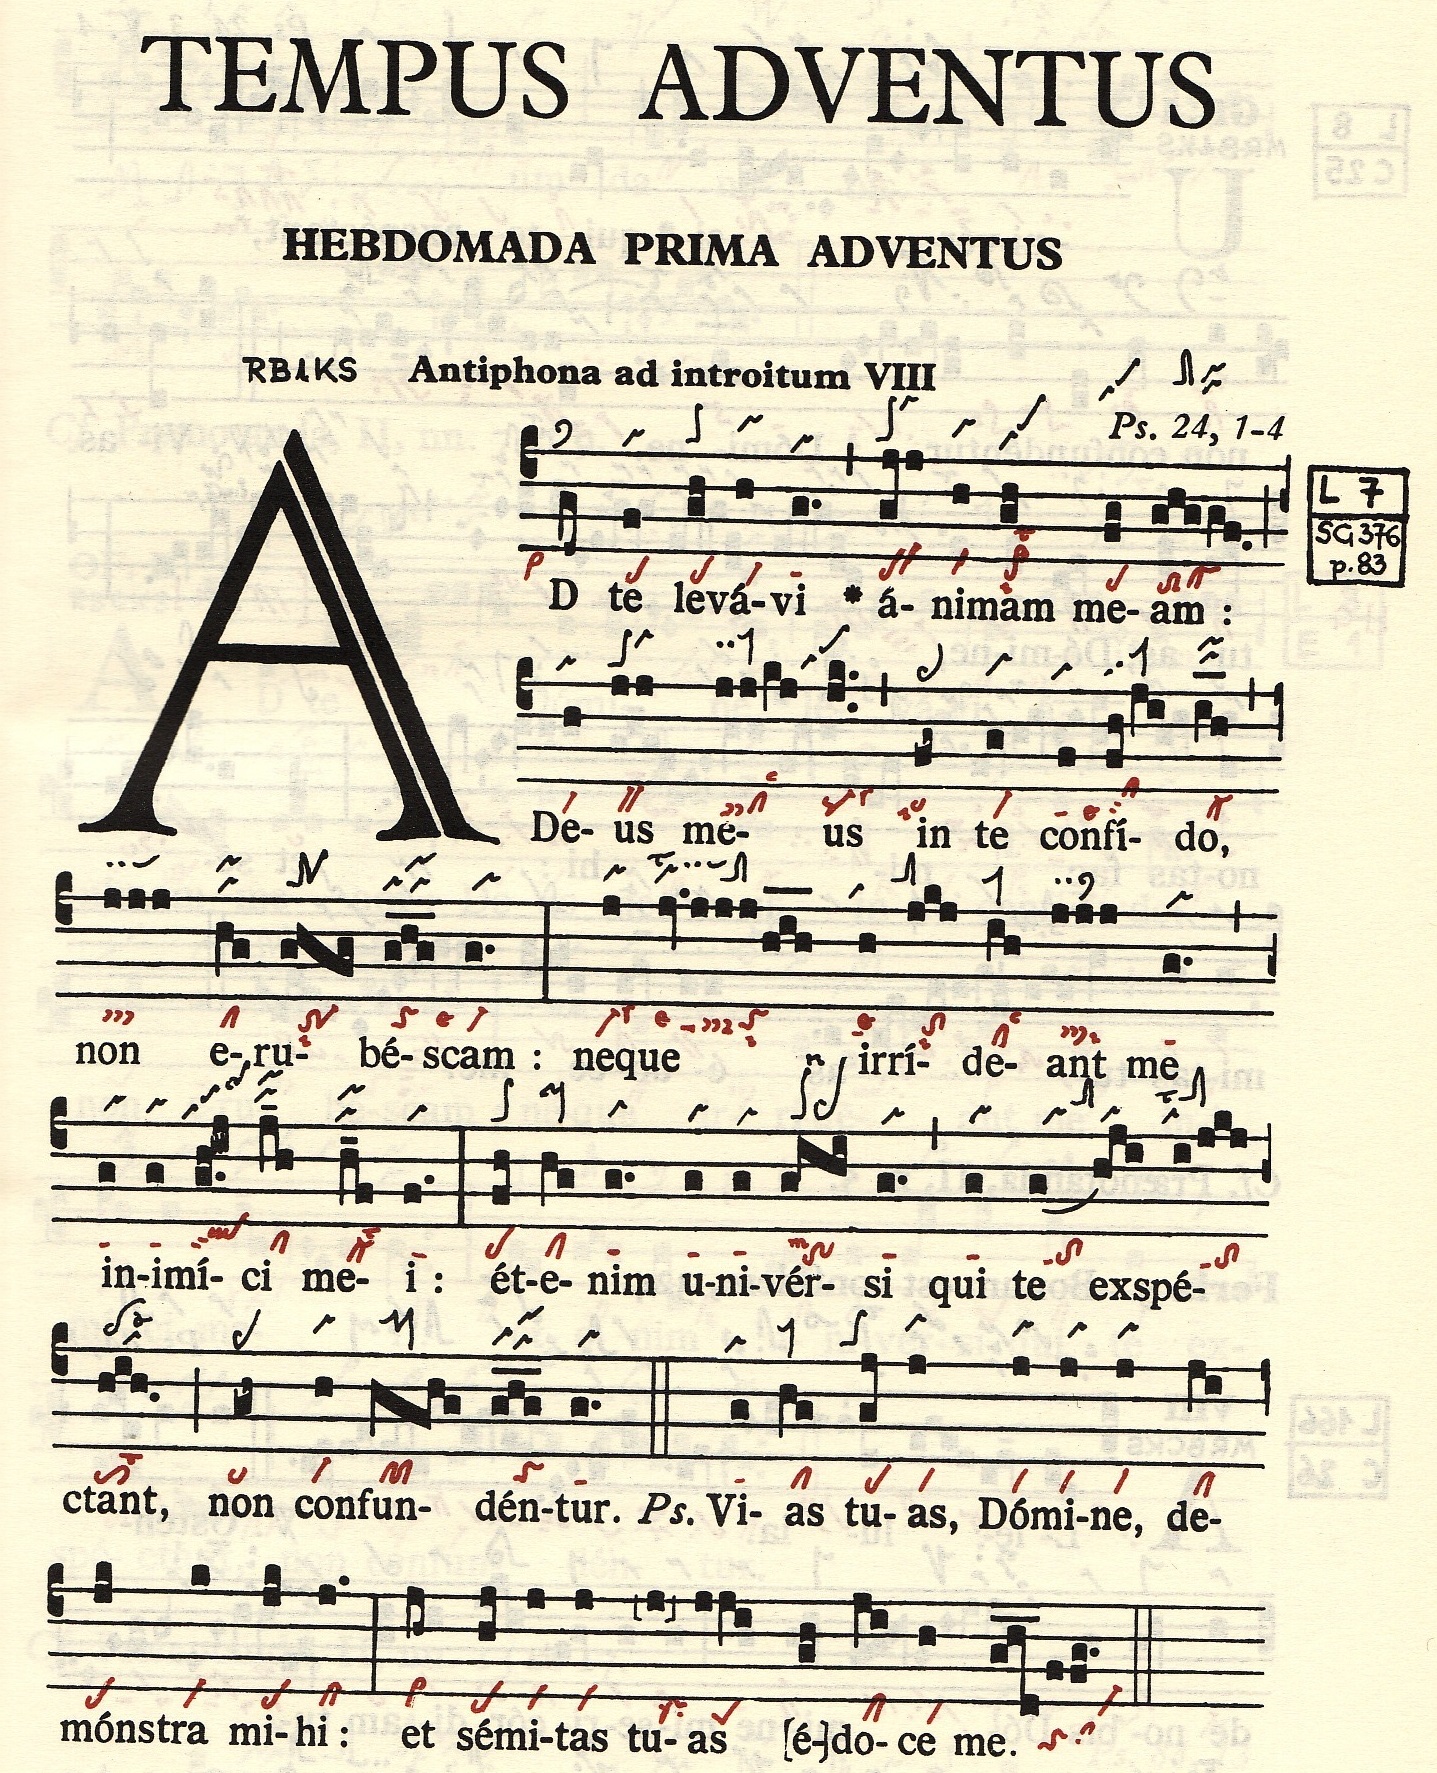 TEMPUS ADVENTUS
HEBDOMADA PRIMA ADVENTUS
RB1KS Antiphona ad introitum VIII
Ps. 24, 1-4
L 7
SG 376
p. 83
AD te levá-vi * á- nimam me- am :
De- us me- us in te confí- do,
non e- ru- bé- scam : neque irrí- de- ant me
in-imí- ci me- i : ét-e- nim u-ni-vér- si qui te exspé-
ctant, non confun- dén-tur. Ps. Vi- as tu- as, Dómi-ne, de-
mónstra mi- hi : et sémi-tas tu- as [é-]do- ce me.